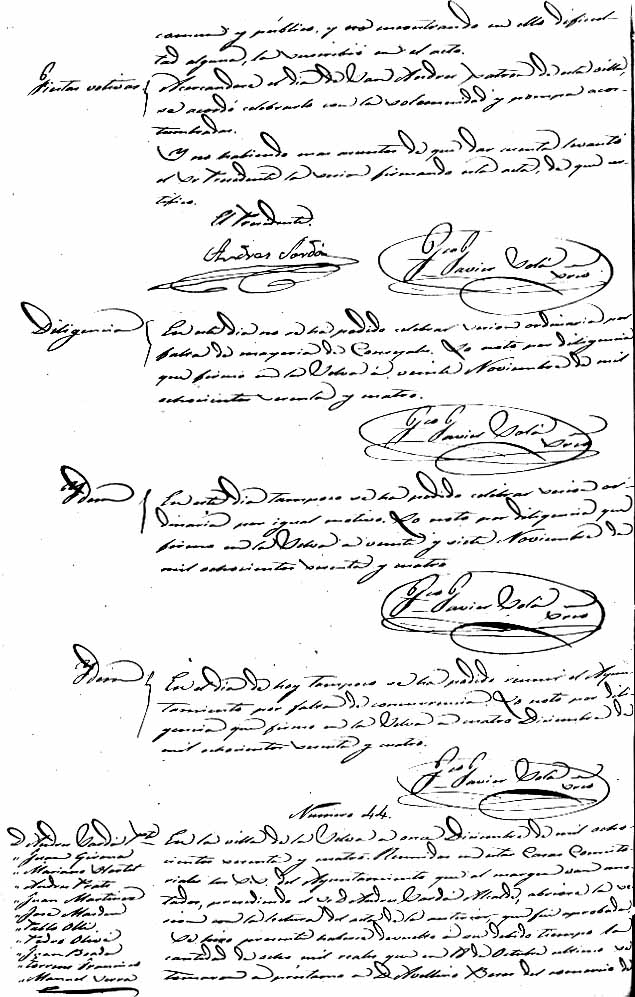 comun y público, y no encontrando en ello dificul-
tad alguna, la suscribió en el acto.
Fiestas votivas
Acercandose el dia de San Andres Patron de esta villa,
se acordó celebrarlo con la solemnidad y pompa acos-
tumbradas.
Y no habiendo mas asuntos de que dar cuenta levantó
el Sr Presidente la sesion firmando esta acta, de que cer-
tifico.
El Presidente.
Andres Sardá
Fco
Javier Solá
Srio
Diligencia
En este dia no se ha podido celebrar sesion ordinaria por
falta de mayoria de Concejales. Lo noto por diligencia
que firmo en la Selva á veinte Noviembre de mil
ochocientos sesenta y cuatro.
Fco
Javier Solá
Srio
Idem
En este dia tampoco se ha podido celebrar sesion or-
dinaria por igual motivo. Lo noto por diligencia que
firmo en la Selva á veinte y siete Noviembre de
mil ochocientos sesenta y cuatro
Fco
Javier Solá
Srio
Idem
En el dia de hoy tampoco se ha podido reunir el Ayun-
tamiento por falta de concurrencia. Lo noto por dili-
gencia que firmo en la Selva á cuatro Diciembre de
mil ochocientos sesenta y cuatro.
Fco
Javier Solá
Srio
Numero 44.
D. Andres Sardá
" Juan Girona
" Mariano
" Andres
" Juan Martinez
" José
" Pablo Olle
" Pedro Oliva
" Juan
" Francisco
" Manuel Serra
En la villa de la Selva á once Diciembre de mil ocho-
cientos sesenta y cuatro. Reunidos en estas Casas Consisto-
riales los SS. del Ayuntamiento que al margen van ano-
tados, presidiendo el Sr D. Andres Sardá Alcalde, abriose la se-
sion con la lectura del acta de la anterior, que fué aprobada.
Se hizo presente haberse devuelto en su debido tiempo la
cantidad de ocho mil reales que en de Octubre ultimo se
tomaron á préstamo á D. Avellino del comercio de